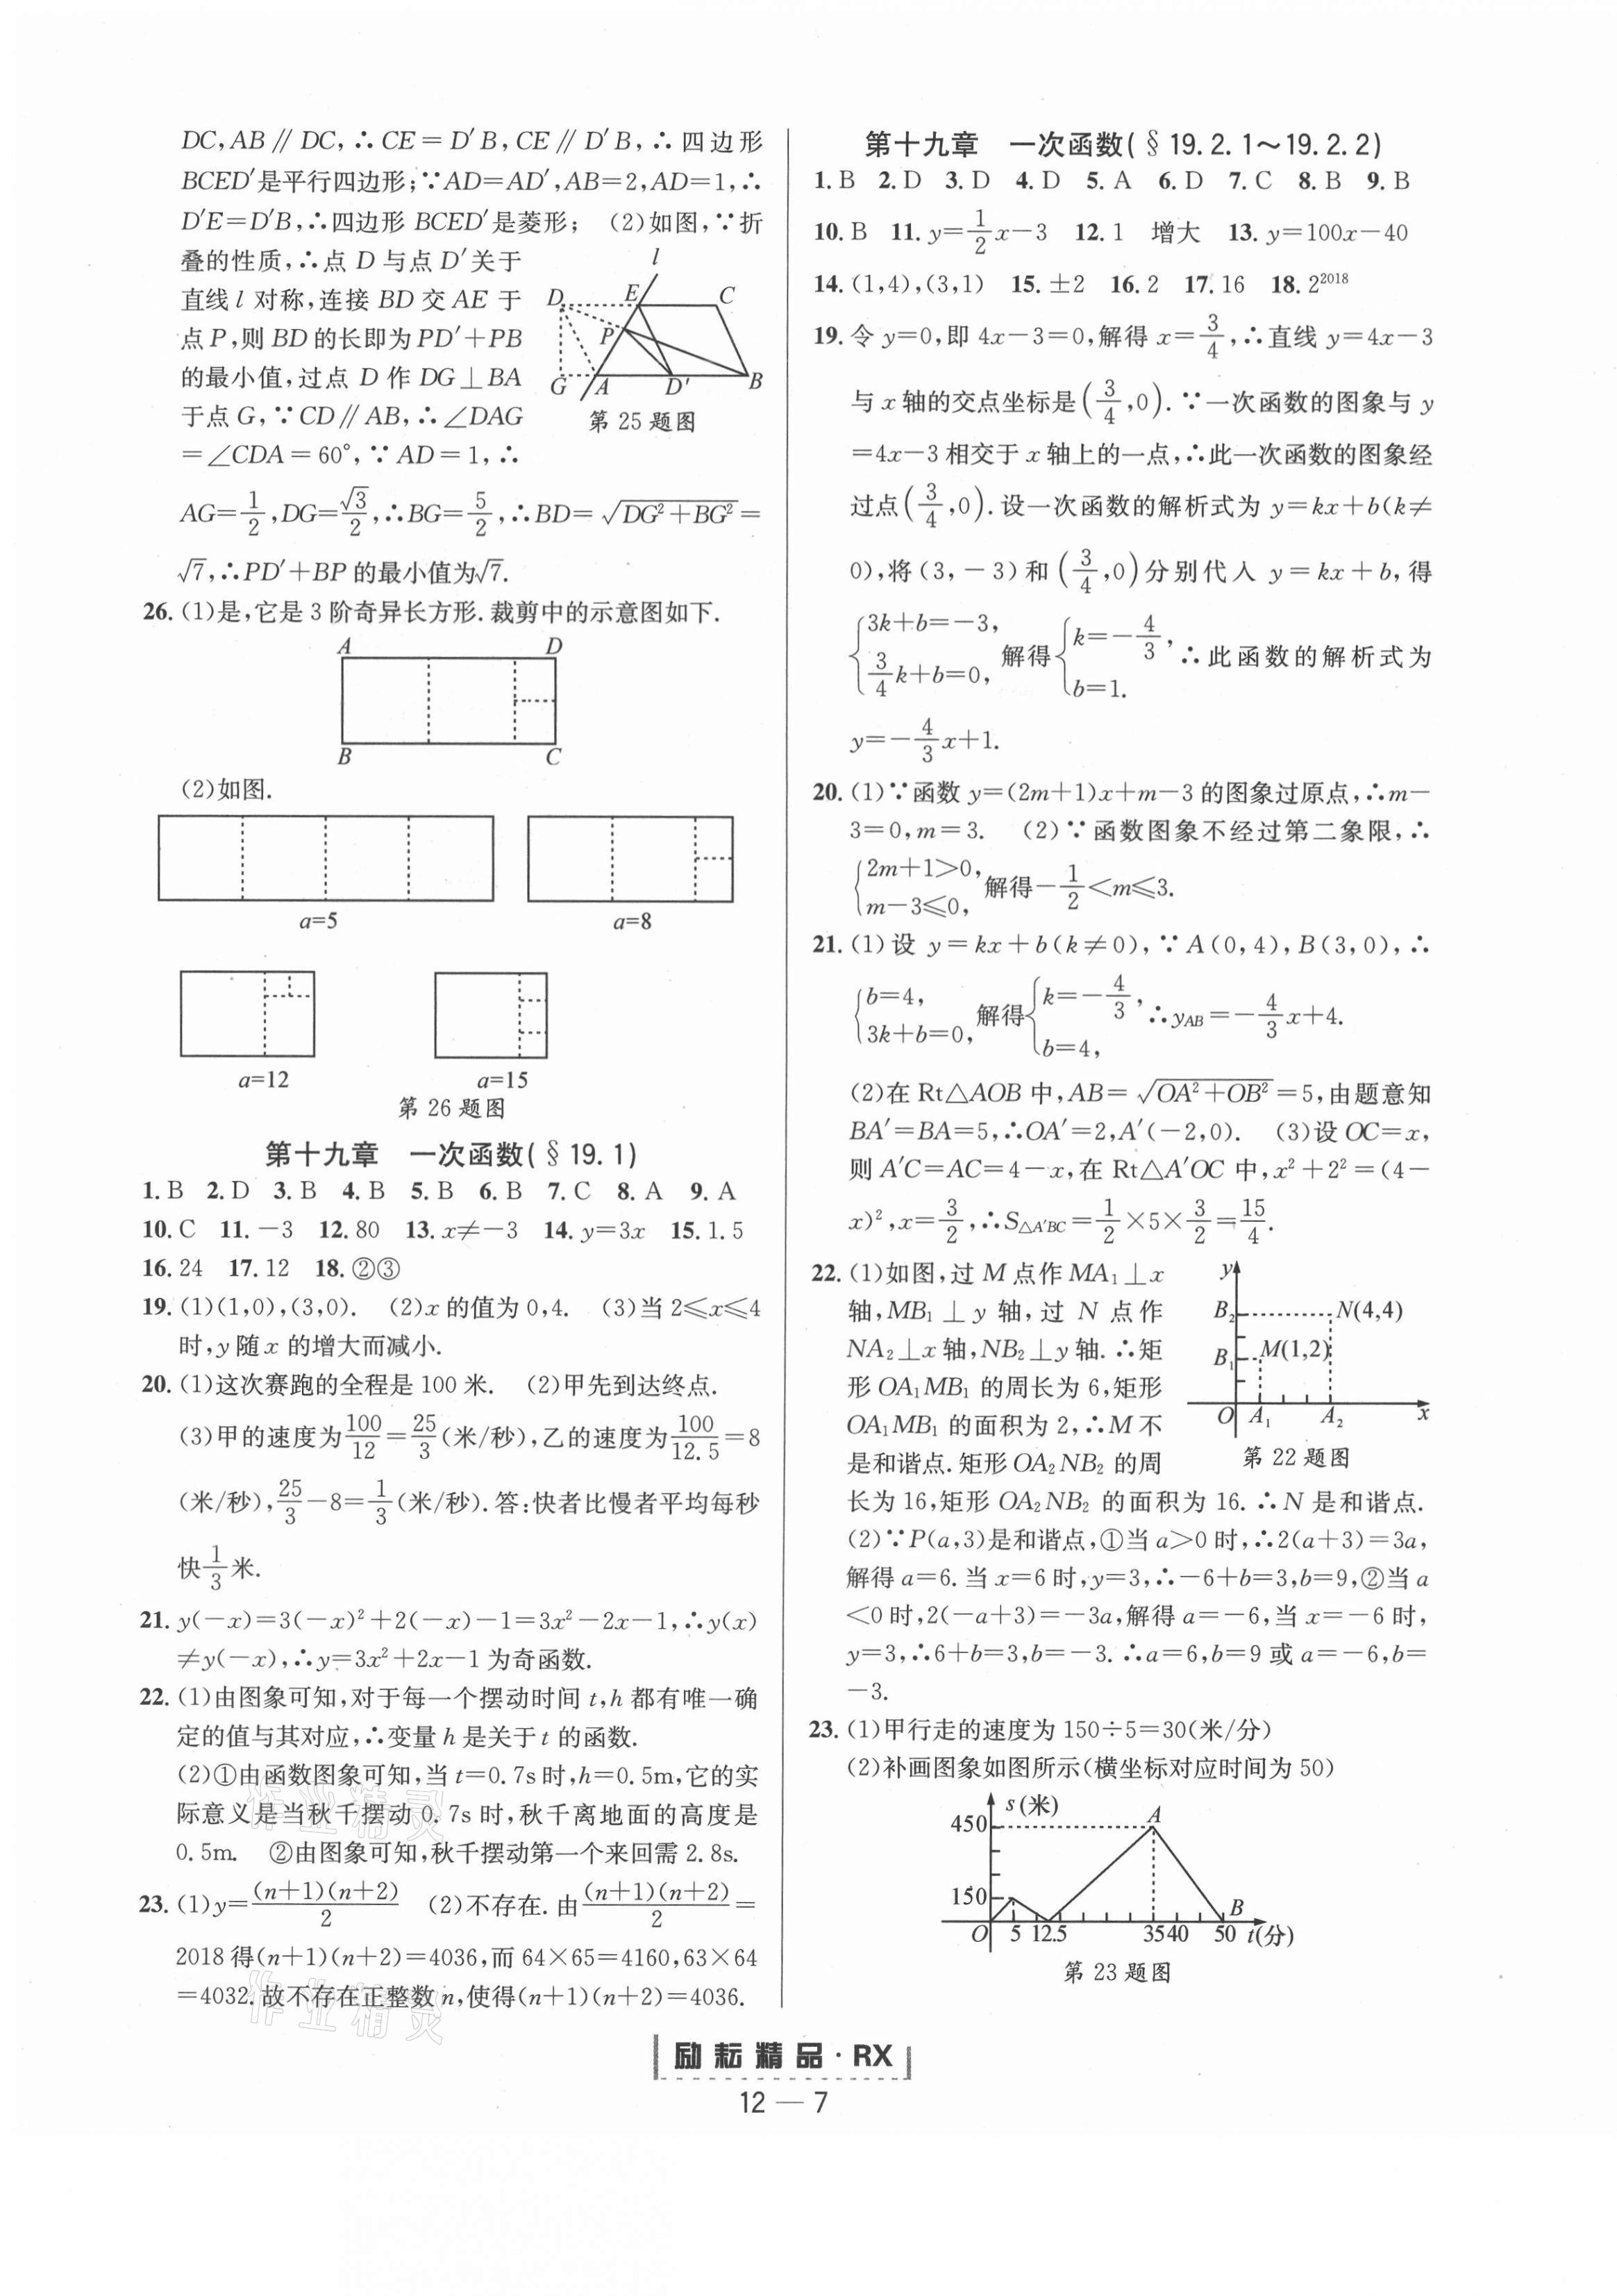 DC,AB∥DC,∴CE=D′B,CE∥D′B,∴四边形
BCED′是平行四边形;∵AD=AD′,AB=2,AD=1,∴
D′E=D′B,∴四边形 BCED′是菱形; (2)如图,∵折
叠的性质,∴点 D 与点 D′关于
直线 l 对称,连接 BD 交 AE 于
点 P,则 BD 的长即为 PD′+PB
的最小值,过点 D 作 DG⊥BA
于点 G,∵CD∥AB,∴∠DAG
=∠CDA=60°,∵AD=1,∴
l
D E C
P
G A D′ B
第 25 题图
AG=1/2,DG=√3/2,∴BG=5/2,∴BD=√(DG²+BG²)=
√7,∴PD′+BP 的最小值为√7.
26.(1)是,它是 3 阶奇异长方形.裁剪中的示意图如下.
A D
B C
(2)如图.
a=5 a=8
a=12 a=15
第 26 题图
第十九章 一次函数(§19.1)
1.B 2.D 3.B 4.B 5.B 6.B 7.C 8.A 9.A
10.C 11.-3 12.80 13.x≠-3 14.y=3x 15.1.5
16.24 17.12 18.②③
19.(1)(1,0),(3,0). (2)x 的值为 0,4. (3)当 2≤x≤4
时,y 随 x 的增大而减小.
20.(1)这次赛跑的全程是 100 米. (2)甲先到达终点.
(3)甲的速度为100/12=25/3(米/秒),乙的速度为100/12.5=8
(米/秒),25/3-8=1/3(米/秒).答:快者比慢者平均每秒
快1/3米.
21.y(-x)=3(-x)²+2(-x)-1=3x²-2x-1,∴y(x)
≠y(-x),∴y=3x²+2x-1 为奇函数.
22.(1)由图象可知,对于每一个摆动时间 t,h 都有唯一确
定的值与其对应,∴变量 h 是关于 t 的函数.
(2)①由函数图象可知,当 t=0.7s 时,h=0.5m,它的实
际意义是当秋千摆动 0.7s 时,秋千离地面的高度是
0.5m. ②由图象可知,秋千摆动第一个来回需 2.8s.
23.(1)y=(n+1)(n+2)/2 (2)不存在.由(n+1)(n+2)/2=
2018 得(n+1)(n+2)=4036,而 64×65=4160,63×64
=4032.故不存在正整数 n,使得(n+1)(n+2)=4036.
第十九章 一次函数(§19.2.1~19.2.2)
1.B 2.D 3.D 4.D 5.A 6.D 7.C 8.B 9.B
10.B 11.y=1/2x-3 12.1 增大 13.y=100x-40
14.(1,4),(3,1) 15.±2 16.2 17.16 18.2²⁰¹⁸
19.令 y=0,即 4x-3=0,解得 x=3/4,∴直线 y=4x-3
与 x 轴的交点坐标是(3/4,0).∵一次函数的图象与 y
=4x-3 相交于 x 轴上的一点,∴此一次函数的图象经
过点(3/4,0).设一次函数的解析式为 y=kx+b(k≠
0),将(3,-3)和(3/4,0)分别代入 y=kx+b,得
{3k+b=-3, 3/4k+b=0, 解得{k=-4/3, b=1. ∴此函数的解析式为
y=-4/3x+1.
20.(1)∵函数 y=(2m+1)x+m-3 的图象过原点,∴m-
3=0,m=3. (2)∵函数图象不经过第二象限,∴
{2m+1>0, m-3≤0, 解得-1/2<m≤3.
21.(1)设 y=kx+b(k≠0),∵A(0,4),B(3,0),∴
{b=4, 3k+b=0, 解得{k=-4/3, b=4, ∴y_AB=-4/3x+4.
(2)在 Rt△AOB 中,AB=√(OA²+OB²)=5,由题意知
BA′=BA=5,∴OA′=2,A′(-2,0). (3)设 OC=x,
则 A′C=AC=4-x,在 Rt△A′OC 中,x²+2²=(4-
x)²,x=3/2,∴S△A′BC=1/2×5×3/2=15/4.
22.(1)如图,过 M 点作 MA₁⊥x
轴,MB₁⊥y 轴,过 N 点作
NA₂⊥x 轴,NB₂⊥y 轴.∴矩
形 OA₁MB₁ 的周长为 6,矩形
OA₁MB₁ 的面积为 2,∴M 不
是和谐点.矩形 OA₂NB₂ 的周
y
B₂ N(4,4)
B₁ M(1,2)
O A₁ A₂ x
第 22 题图
长为 16,矩形 OA₂NB₂ 的面积为 16.∴N 是和谐点.
(2)∵P(a,3)是和谐点,①当 a>0 时,∴2(a+3)=3a,
解得 a=6.当 x=6 时,y=3,∴-6+b=3,b=9,②当 a
<0 时,2(-a+3)=-3a,解得 a=-6,当 x=-6 时,
y=3,∴6+b=3,b=-3.∴a=6,b=9 或 a=-6,b=
-3.
23.(1)甲行走的速度为 150÷5=30(米/分)
(2)补画图象如图所示(横坐标对应时间为 50)
s(米)
450 A
150 B
O 5 12.5 35 40 50 t(分)
第 23 题图
作业精灵
作业精灵
励耘精品·RX
12—7